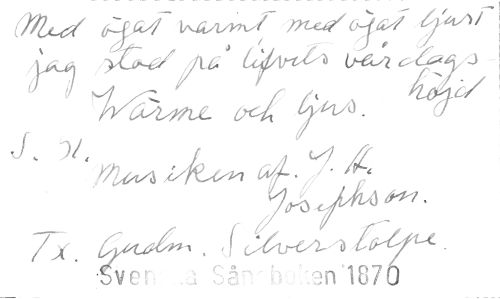 Med ögat varmt med ögat ljust
jag stod på lifvets vårdags
höjd
Wärme och ljus.
S. H.
Musiken af. J. A.
Josephson.
Tx. Gudm. Silverstolpe.
Svenska Sångboken 1870